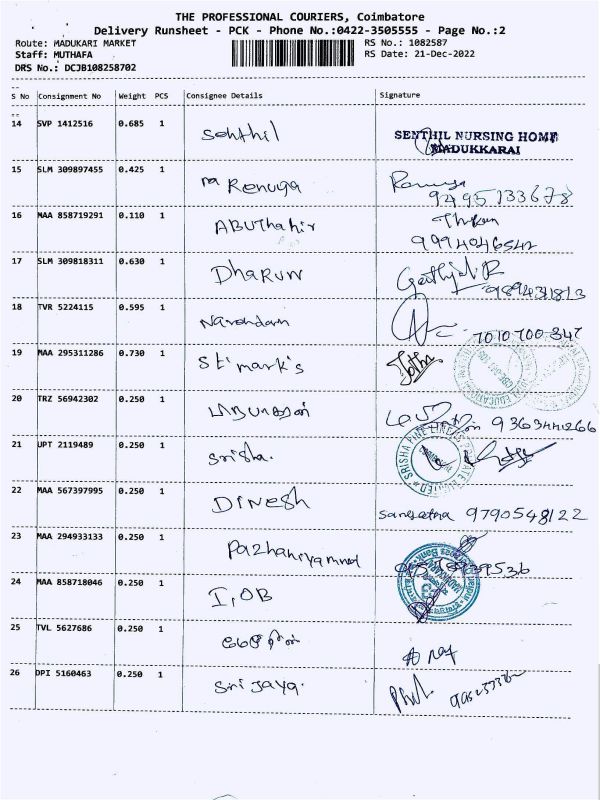 THE PROFESSIONAL COURIERS, Coimbatore
Delivery Runsheet - PCK - Phone No.:0422-3505555 - Page No.:2
Route: MADUKARI MARKET RS No.: 1082587
Staff: MUTHAFA RS Date: 21-Dec-2022
DRS No.: DCJB108258702
S No Consignment No Weight PCS Consignee Details Signature
14 SVP 1412516 0.685 1 Senthil SENTHIL NURSING HOME
MADUKKARAI
15 SLM 309897455 0.425 1 Renuga
9495133678
16 MAA 858719291 0.110 1 ABUThahir
9994046542
17 SLM 309818311 0.630 1 Dharun
18 TVR 5224115 0.595 1 7010700347
19 MAA 295311286 0.730 1 St. mark's
20 TRZ 56942302 0.250 1 9363441266
21 UPT 2119489 0.250 1 Srisha.
22 MAA 567397995 0.250 1 DINESh Sangeetha 9790548122
23 MAA 294933133 0.250 1
24 MAA 858718046 0.250 1 I.OB
25 TVL 5627686 0.250 1
26 DPI 5160463 0.250 1 Sri Jaya.